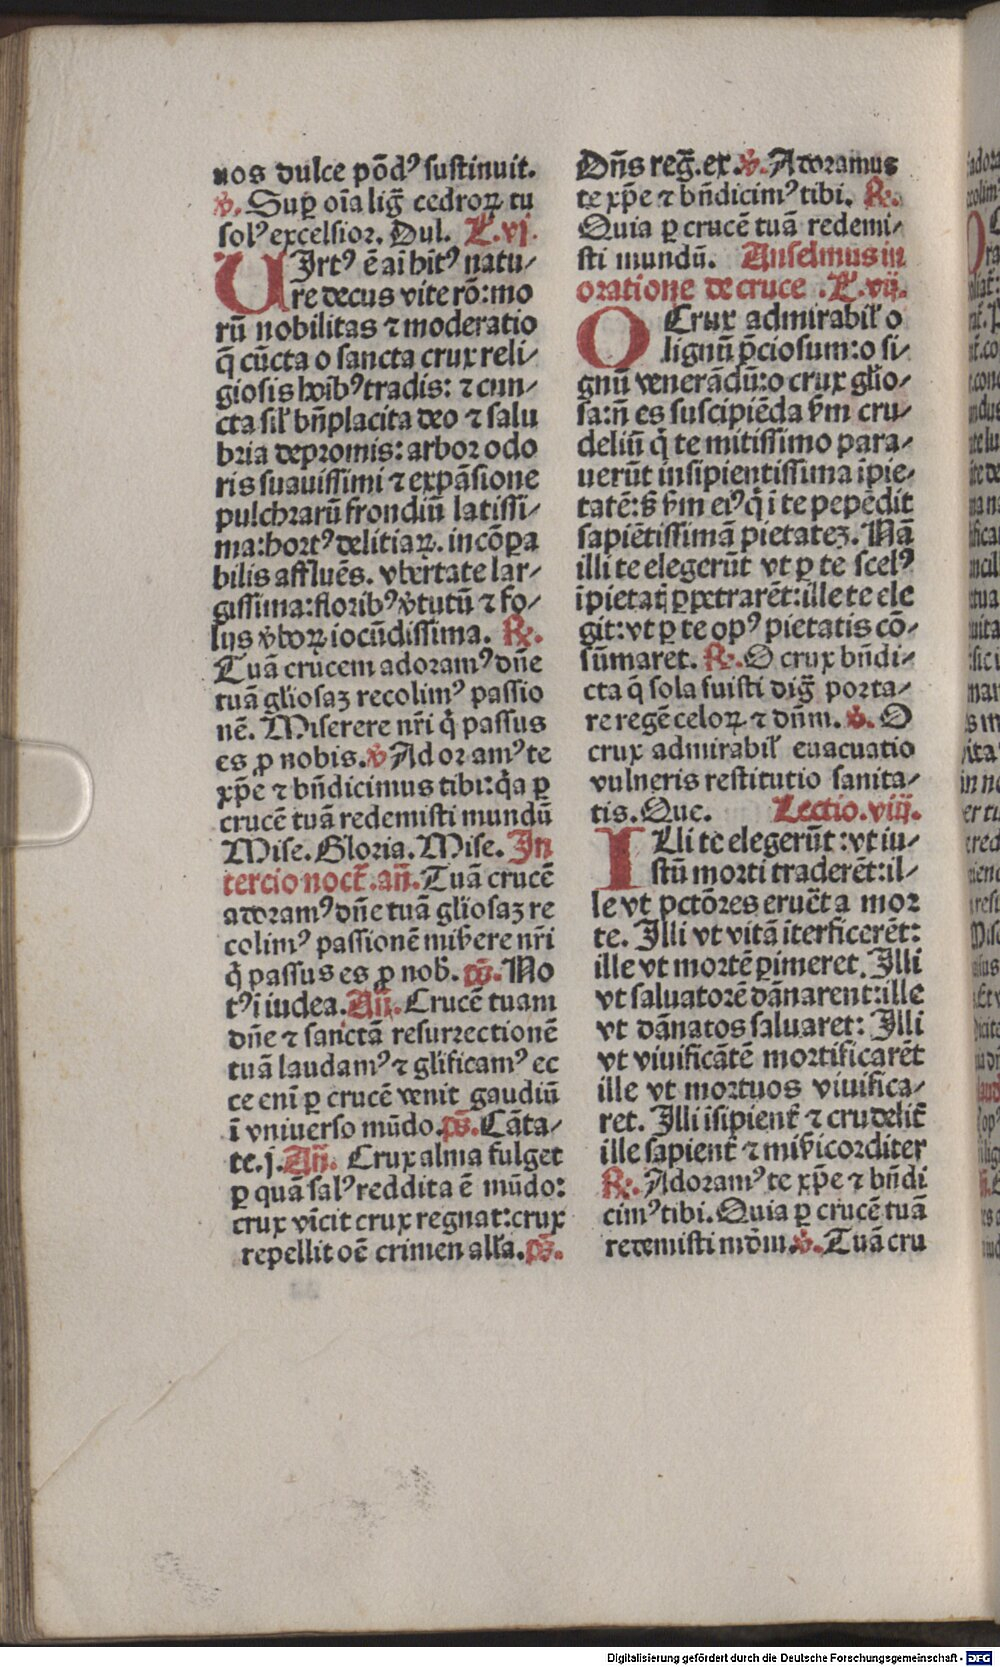 nos dulce põdꝰ sustinuit.
℣. Sup̱ oĩa lig̃ cedroꝝ tu
solꝰ excelsior. Dul. L̃.vj.
UIrtꝰ ẽ aĩ hitꝰ natu⸗
re decus vite rõ:mo
rũ nobilitas ⁊ moderatio
q̃ cũcta o sancta crux reli⸗
giosis hoĩbꝰ tradis: ⁊ cun⸗
cta sil̃ bñplacita deo ⁊ salu
bria depromis: arbor odo
ris suauissimi ⁊ expãsione
pulchrarũ frondiũ latissi⸗
ma:hortꝰ delitiaꝝ. incõꝑa
bilis affluẽs. vbertate lar⸗
gissima:floribꝰ v̾tutũ ⁊ fo⸗
lijs v̾boꝝ iocũdissima. ℟.
Tuã crucem adoramꝰ dñe
tuã gl̃iosaꝫ recolimꝰ passio
nẽ. Miserere nr̃i q̇ passus
es ꝓ nobis. ℣ Adoramꝰ te
xp̃e ⁊ bñdicimus tibi:q̇a ꝑ
crucẽ tuã redemisti mundũ
Mise. Gloria. Mise. In
tercio noct̃. añ. Tuã crucẽ
adoramꝰ dñe tuã gl̃iosaꝫ re
colimꝰ passionẽ mis̾ere nr̃i
q̇ passus es ꝓ nob̾. p̃s. No
tꝰ i iudea. Añ. Crucẽ tuam
dñe ⁊ sanctã resurrectionẽ
tuã laudamꝰ ⁊ gl̃ificamꝰ ec
ce enĩ ꝑ crucẽ venit gaudiũ
ĩ vniuerso mũdo. p̃s. Cãta⸗
te.j. Añ. Crux alma fulget
ꝑ quã salꝰ reddita ẽ mũdo:
crux vĩcit crux regnat:crux
repellit oẽ crimen all̃a. p̃s.
Dñs reg̃.ex. ℣. Adoramus
te xp̃e ⁊ bñdicimꝰ tibi. ℟.
Quia ꝑ crucẽ tuã redemi⸗
sti mundũ. Anselmus in
oratione de cruce .L̃.vij.
O Crux admirabil̃ o
lignũ p̃ciosum:o si⸗
gnũ venerãdũ:o crux gl̃io⸗
sa:ñ es suscipiẽda s̾m cru⸗
deliũ q̇ te mitissimo para⸗
uerũt insipientissima ĩpie⸗
tatẽ:s̾ s̾m eiꝰ q̇ ĩ te pepẽdit
sapiẽtissimã pietateꝫ. Nã
illi te elegerũt vt ꝑ te scelꝰ
ĩpietat̃ ꝑpetrarẽt:ille te ele
git:vt ꝑ te opꝰ pietatis cõ⸗
sũmaret. ℟. O crux bñdi⸗
cta q̃ sola fuisti dig̃ porta⸗
re regẽ celoꝝ ⁊ dñm. ℣. O
crux admirabil̃ euacuatio
vulneris restitutio sanita⸗
tis. Que. Lectio.viij.
ILli te elegerũt :vt iu⸗
stũ morti traderẽt:il⸗
le vt pctõres eruẽt a mor
te. Illi vt vitã iterficerẽt:
ille vt mortẽ ꝑimeret. Illi
vt saluatorẽ dãnarent:ille
vt dãnatos saluaret: Illi
vt viuificãtẽ mortificarẽt
ille vt mortuos viuifica⸗
ret. Illi isipient̃ ⁊ crudelit̃
ille sapient̃ ⁊ mis̾icorditer
℟. Adoramꝰ te xp̃e ⁊ bñdi
cimꝰ tibi. Quia ꝑ crucẽ tuã
redemisti mũdũm. ℣. Tuã cru
Digitalisierung gefördert durch die Deutsche Forschungsgemeinschaft - DFG